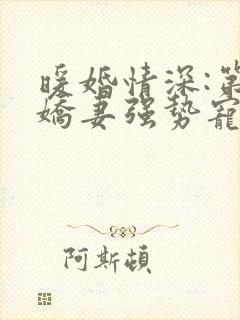 暖婚情深:第
嬌妻强势寵
阿斯頓